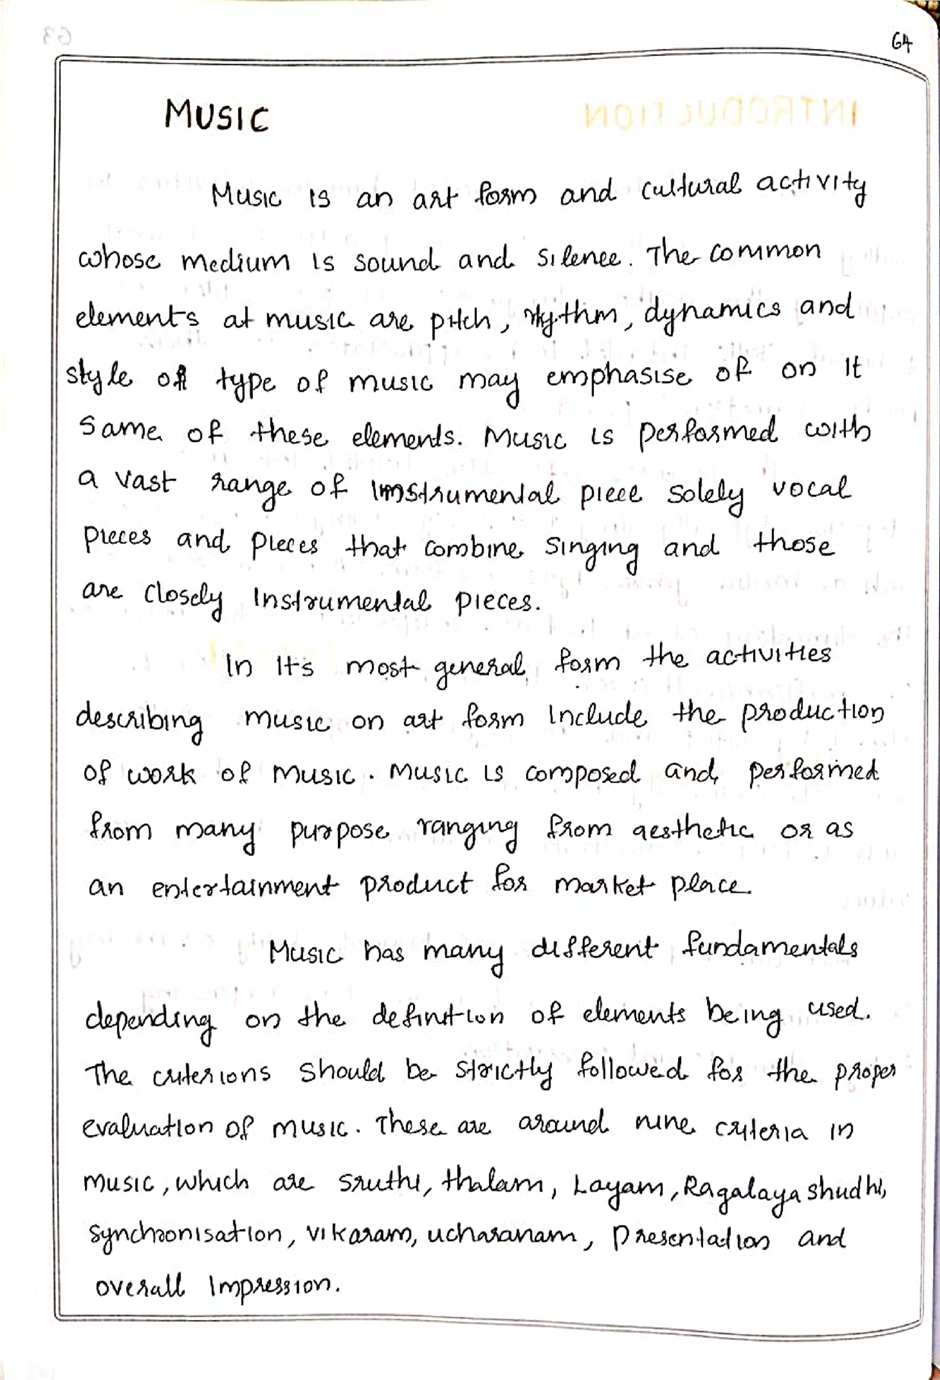 64
MUSIC
Music is an art form and cultural activity
whose medium is sound and silence. The common
elements at music are pitch, rhythm, dynamics and
style or type of music may emphasise of on it
Same of these elements. Music is performed with
a vast range of imstrumental piece solely vocal
pieces and pieces that combine singing and those
are closely instrumental pieces.
In it's most general form the activities
describing music on art form include the production
of work of music. Music is composed and performed
from many purpose ranging from aesthetic or as
an entertainment product for market place
Music has many different fundamentals
depending on the definition of elements being used.
The criterions should be strictly followed for the proper
evaluation of music. These are around nine criteria in
music, which are sruthi, thalam, Layam, Ragalaya shudhi,
synchronisation, vikaram, ucharanam, presentation and
overall impression.